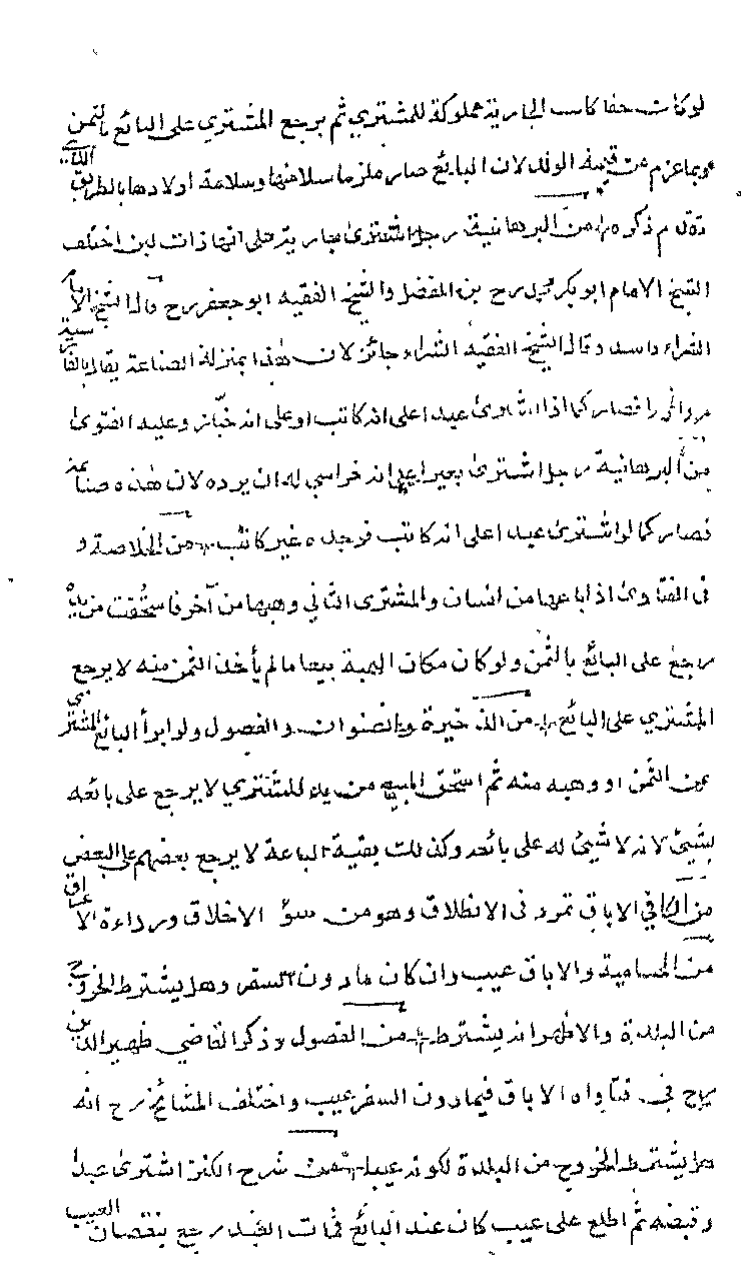 لو كانت حقا كانت الجارية مملوكة للمشتري ثم يرجع المشتري على البائع بالثمن
وبما غرم من قيمة الولد لان البايع صار ملزما سلامتها وسلامة اولادها بالطريق
ذكره من البرهانية رجل اشترى جارية على انها ذات لبن اختلف
الشيخ الامام ابو بكر محمد رح بن الفضل والشيخ الفقيه ابو جعفر رح قال الشيخ الامام
الشراء فاسد وقال الشيخ الفقيه الشراء جائز لان هذا بمنزلة الصناعة يقال بالفارسية
كما اذا اشترى عبدا على انه كاتب او على انه خباز وعليه الفتوى
من البرهانية رجل اشترى بعيرا على انه خراسي له ان يرده لان هذه صناعة
فصار كما لو اشترى عبدا على انه كاتب فوجده غير كاتب من الخلاصة و
فى الفتاوى اذا باعها من انسان والمشترى الثاني وهبها من آخر فاستحقت من يده
رجع على البائع بالثمن ولو كان مكان الهبة بيعا مالم يأخذ الثمن منه لا يرجع
المشتري على البائع من الذخيرة وبالصنوان والفصول ولو ابرأ البائع المشتري
عن الثمن او وهبه منه ثم استحق المبيع من يد المشتري لا يرجع على بائعه
بشيئ لانه لا شيئ له على بائعه وكذلك بقية الباعة لا يرجع بعضهم على البعض
من الكافي الاباق تمرد فى الانطلاق وهو من سؤ الاخلاق ورداءة الاعراق
من الحسامية والاباق عيب وان كان ما دون السفر وهل يشترط الخروج
من البلدة والاظهر انه يشترط من الفصول وذكر القاضي ظهير الدين
رح فى فتاواه الاباق فيما دون السفر عيب واختلف المشائخ رح انه
هل يشترط الخروج من البلدة لكونه عيبا من شرح الكنز اشترى عبدا
وقبضه ثم اطلع على عيب كان عند البائع فمات العبد رجع بنقصان العيب